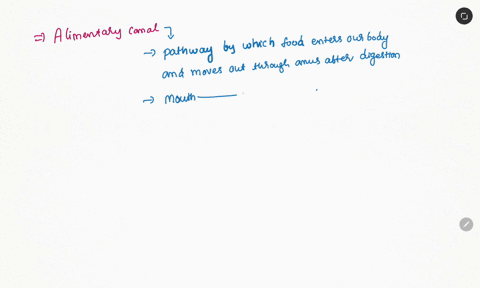 ⇒ Alimentary canal
→ pathway by which food enters our body
and moves out through anus after digestion
→ Mouth